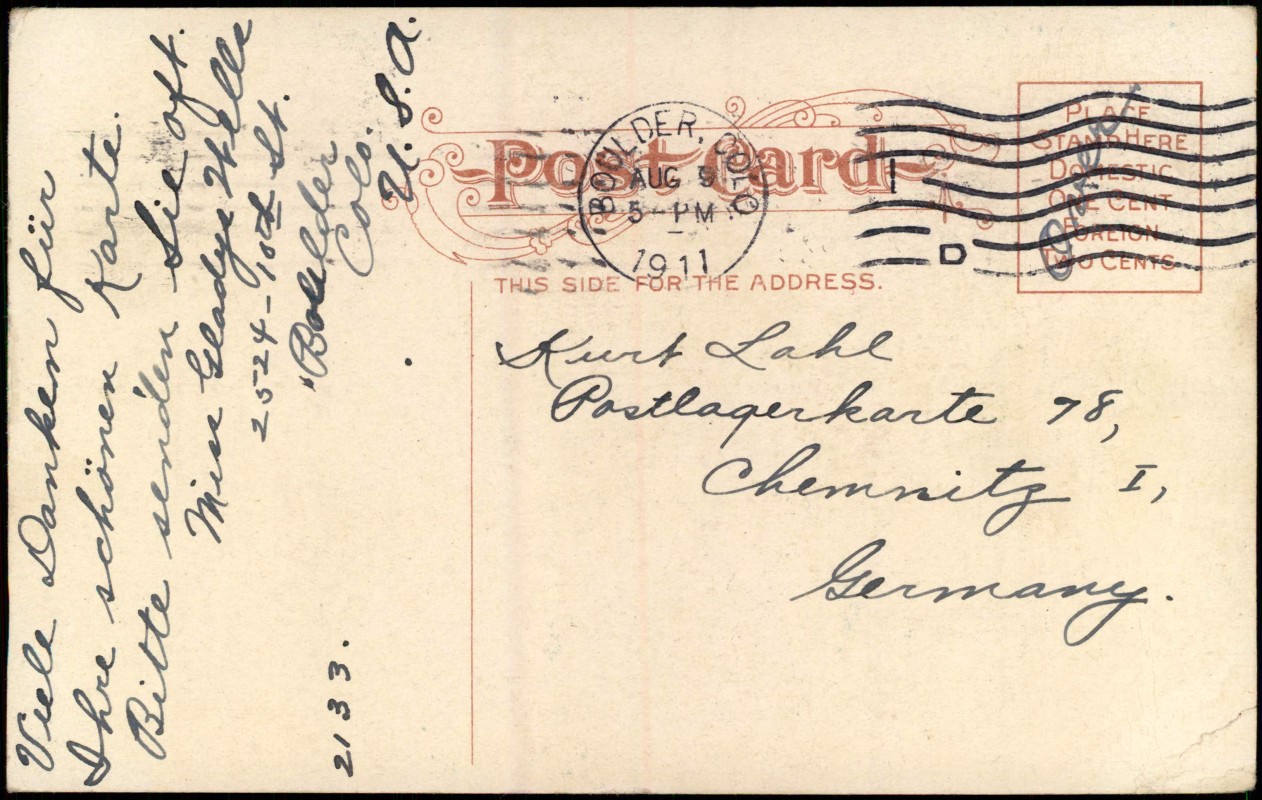 Viele Danken für
Ihre schönen Karte.
Bitte senden Sie oft.
Miss Gladys Wells
2524-10th St.
"Boulder
Colo.
U. S. A.
2133.
Post Card
THIS SIDE FOR THE ADDRESS.
BOULDER, COLO
AUG 9
5 - PM
1911
1
D
PLACE
STAMP HERE
DOMESTIC
ONE CENT
FOREIGN
TWO CENTS
Kurt Lahl
Postlagerkarte 78,
Chemnitz I,
Germany.